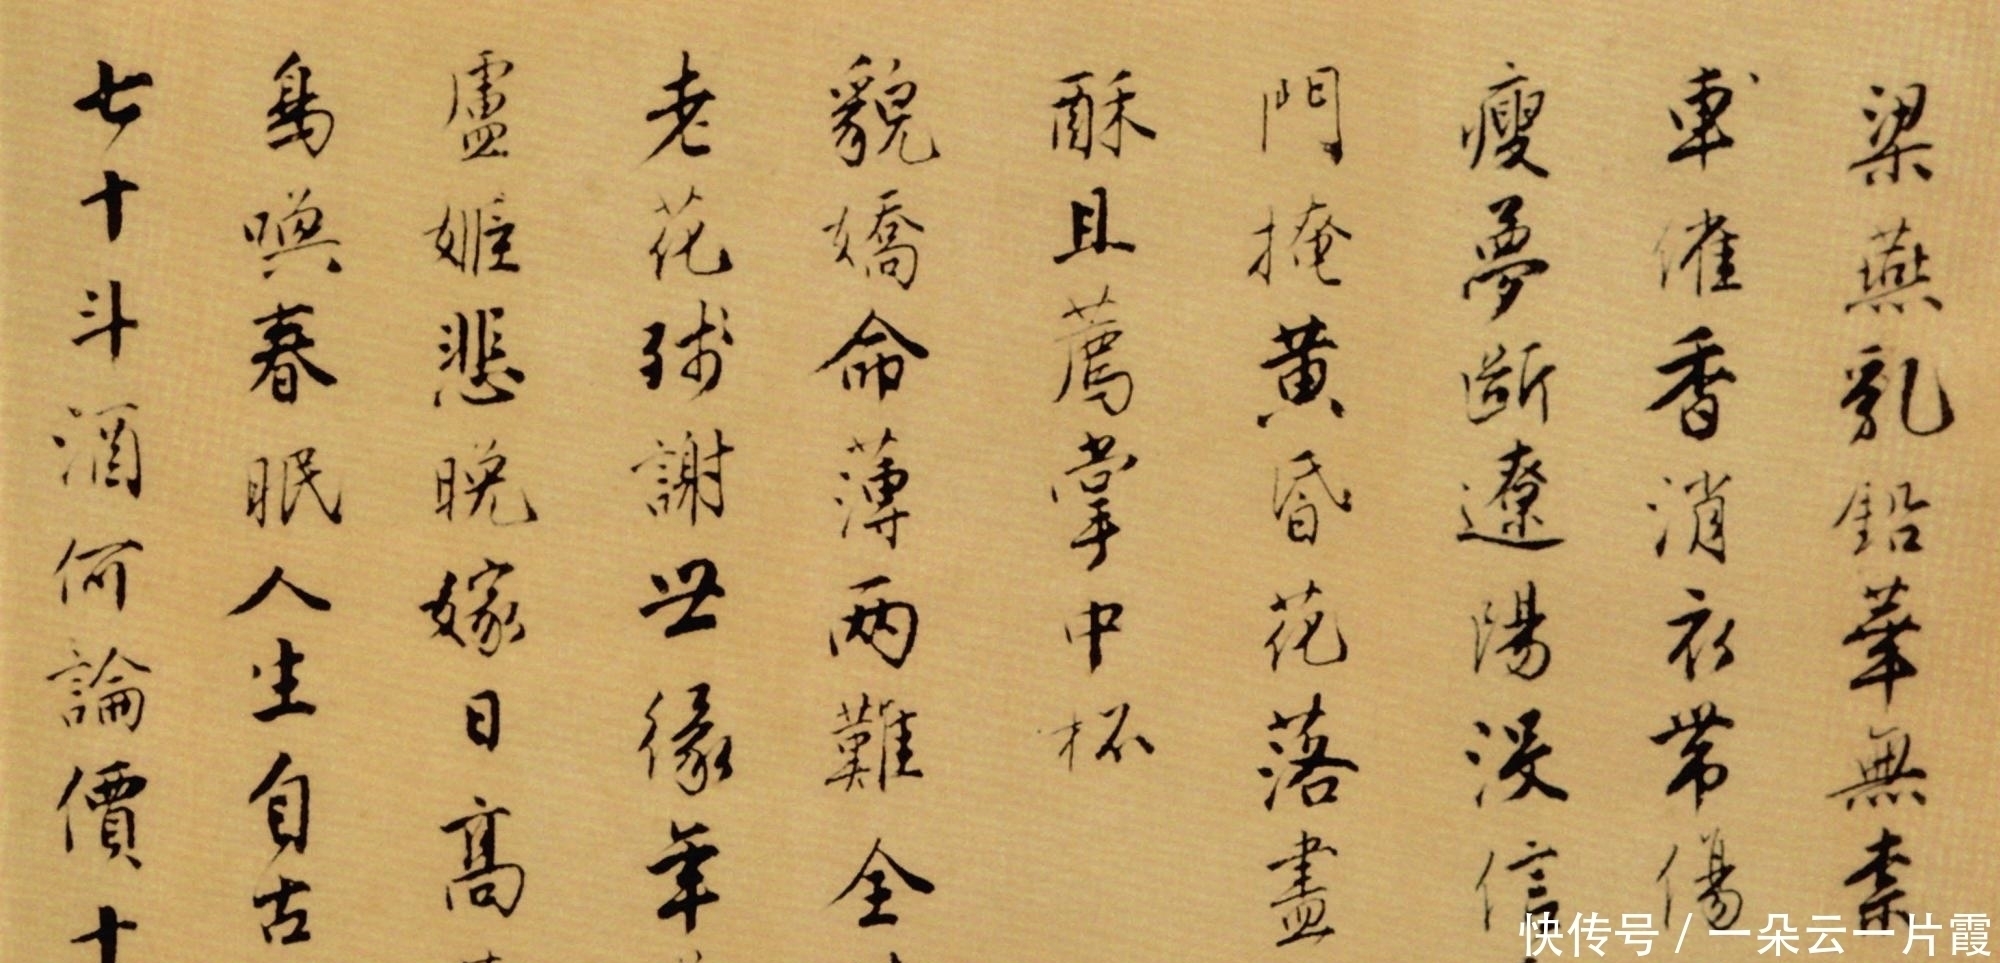 梁燕乳鉛華無素
車催香消衣帶傷
瘦夢斷遼陽沒信
門掩黃昏花落盡
酥且薦掌中杯
貌嬌命薄兩難全
老花殘謝世緣年
盧姬悲晚嫁日高
鳥喚春眠人生自古
七十斗酒何論價十
快传号 / 一朵云一片霞